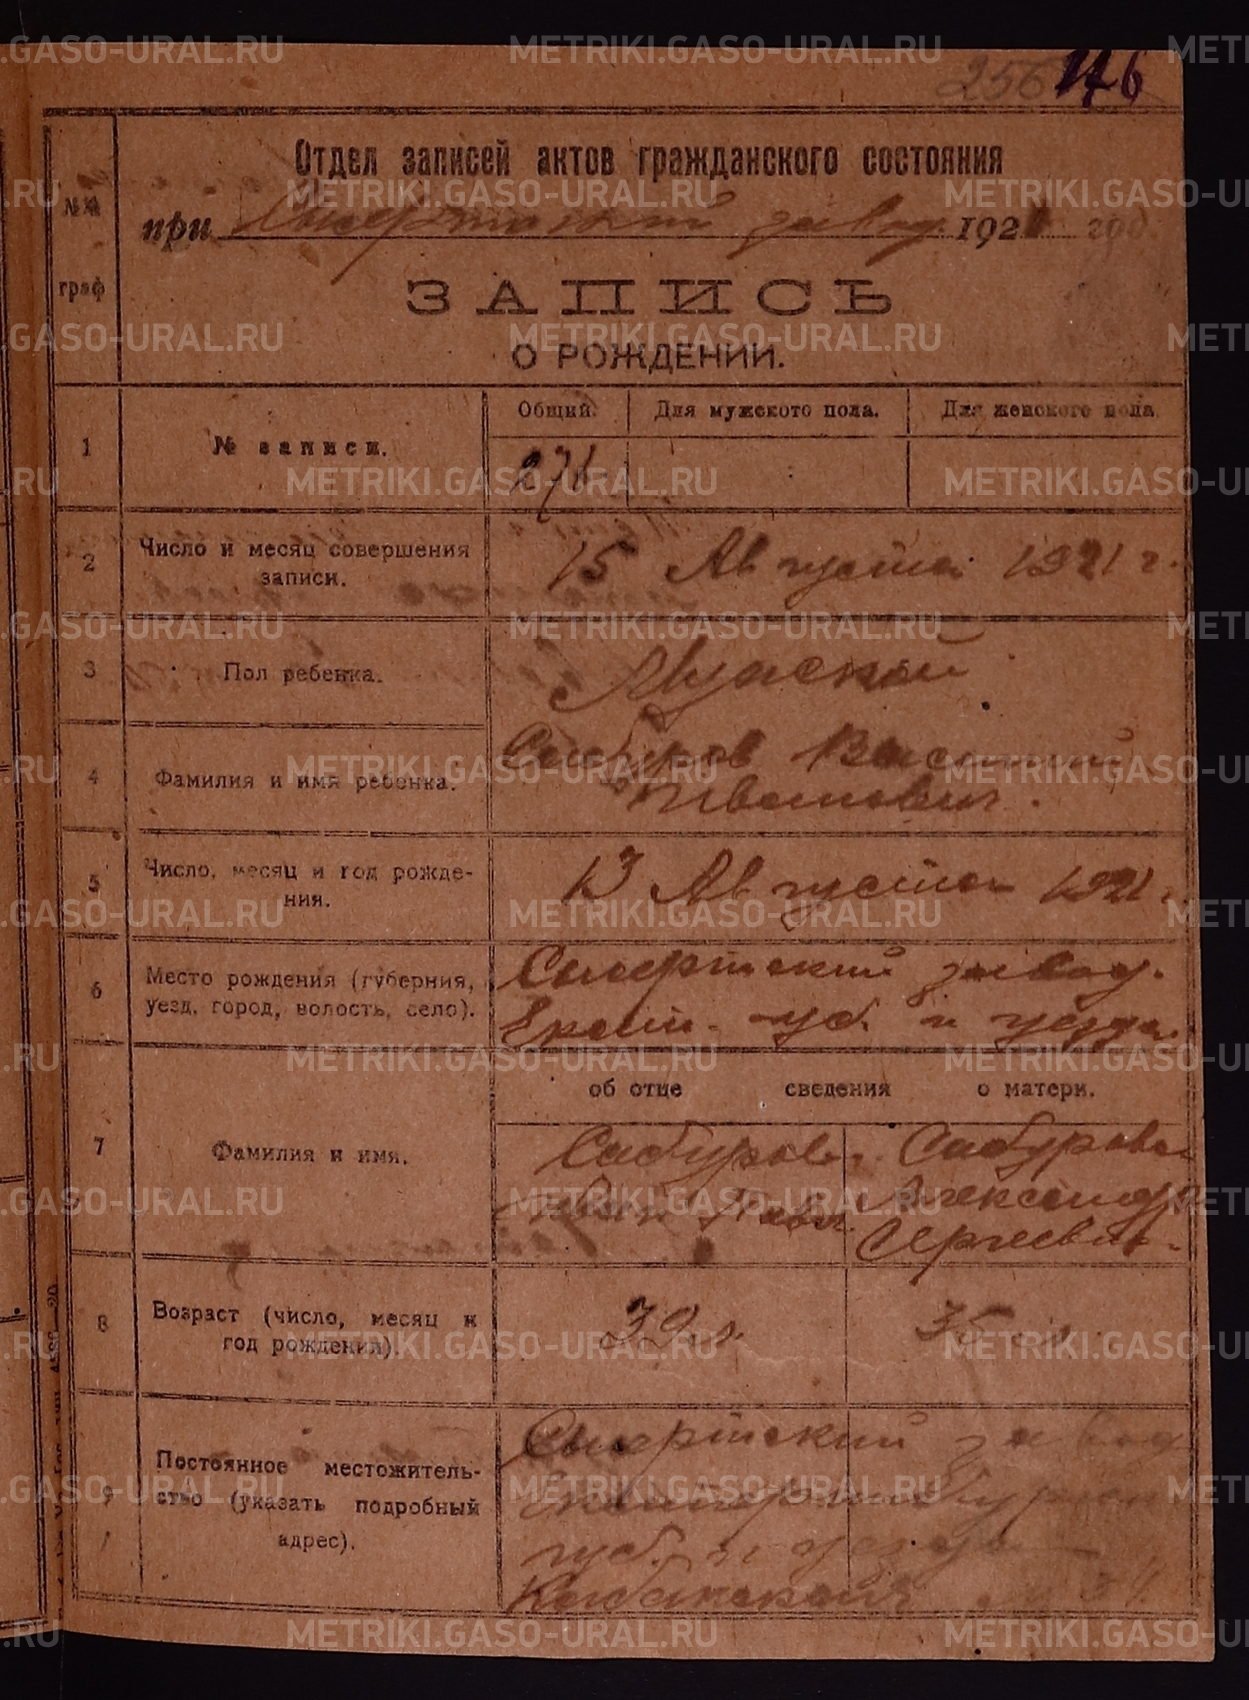 256 176
Отдел записей актов гражданского состояния
№№ граф
при Сысертский завод 1921 год.
ЗАПИСЬ
О РОЖДЕНИИ.
Общий. Для мужского пола. Для женского пола.
1 № записи. 271
2 Число и месяц совершения записи. 15 Августа 1921 г.
3 Пол ребенка. Мужской
4 Фамилия и имя ребенка. Сабуров Василий
Иванович.
5 Число, месяц и год рожде-
ния. 13 Августа 1921 г.
6 Место рождения (губерния, Сысертский завод.
уезд, город, волость, село). Екат. губ. и уезда.
об отце сведения о матери.
7 Фамилия и имя. Сабуров Сабурова
Иван Павл. Александр
Сергеевн.
8 Возраст (число, месяц и
год рождения). 39 л. 35 л.
9 Постоянное местожитель-
ство (указать подробный
адрес).
Сысертский завод
Екатеринбург
губ. и уезда
METRIKI.GASO-URAL.RU